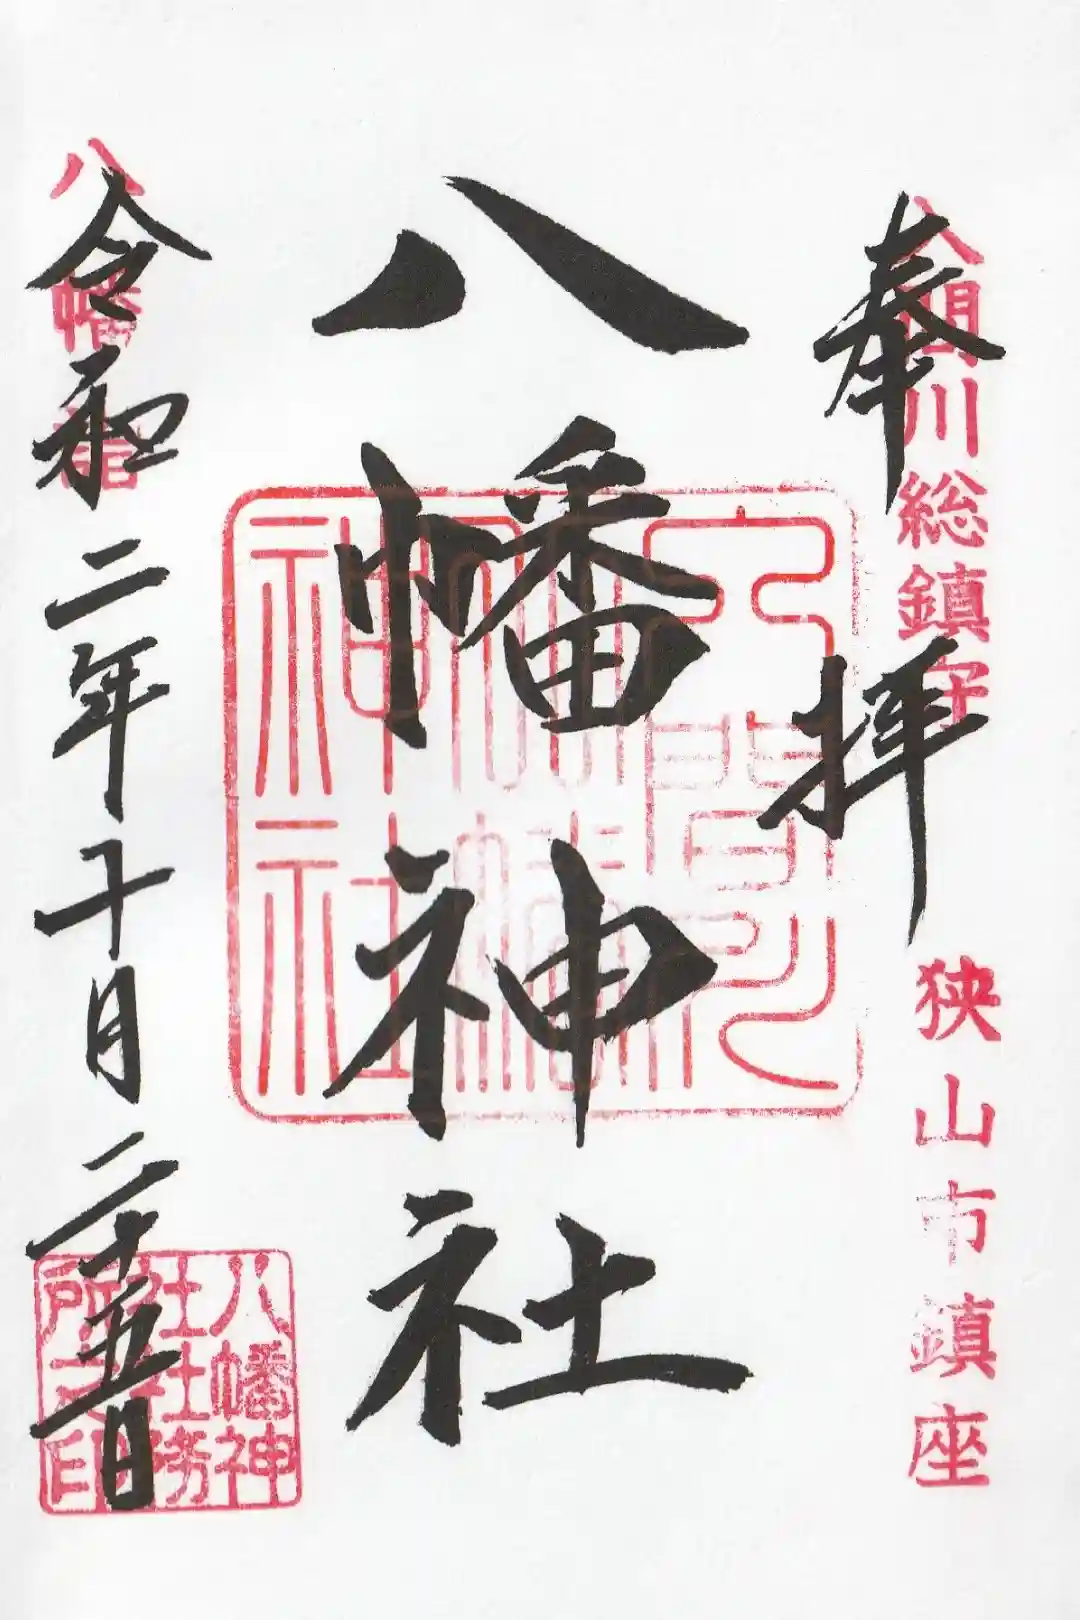 入間川総鎮守
狭山市鎮座
奉拝
八幡神社
入間
川八幡
神社
令和二年十月二十五日
八幡
八幡神
社社務
所之印